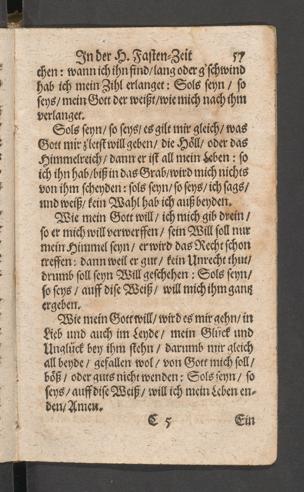 In der H. Fasten-Zeit 57
chen: wann ich ihn find/ lang oder g'schwind
hab ich mein Zihl erlanget: Sols seyn/ so
seys/ mein Gott der weißt/ wie mich nach ihm
verlanget.
Sols seyn/ so seys/ es gilt mir gleich/ was
Gott mir z'letst will geben/ die Höll/ oder das
Himmelreich/ dann er ist all mein Leben: so
ich ihn hab/ biß in das Grab/ wird mich nichts
von ihm scheyden: sols seyn/ so seys/ ich sags/
und weiß/ kein Wahl hab ich auß beyden.
Wie mein Gott will/ ich mich gib drein/
so er mich will verwerffen/ sein Will soll nur
mein Himmel seyn/ er wird das Recht schon
treffen: dann weil er gut/ kein Unrecht thut/
drumb soll seyn Will geschehen: Sols seyn/
so seys/ auff dise Weiß/ will mich ihm gantz
ergeben.
Wie mein Gott will/ wird es mir gehn/ in
Lieb und auch im Leyde/ mein Glück und
Unglück bey ihm stehn/ darumb mir gleich
all beyde/ gefallen wol/ von Gott mich soll/
böß/ oder guts nicht wenden: Sols seyn/ so
seys/ auff dise Weiß/ will ich mein Leben en-
den/ Amen.
C 5 Ein